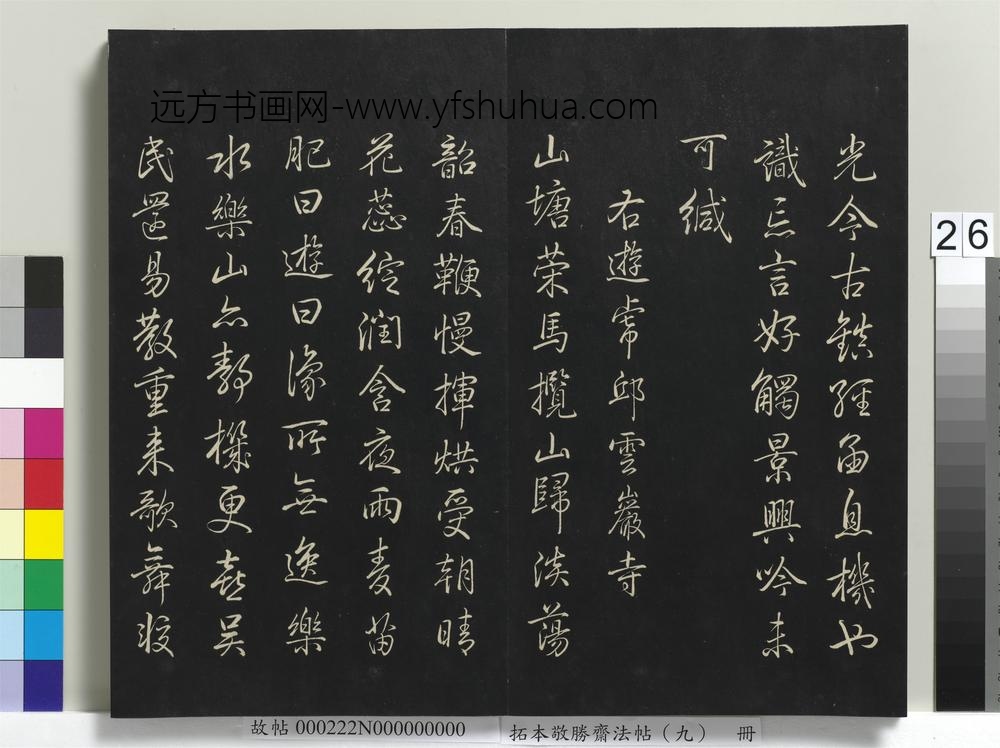 远方书画网-www.yfshuhua.com
光今古鎮經函息機也
識忘言好觸景興吟未
可緘
右遊虎邱雲巖寺
山塘策馬攬山歸淡蕩
韶春鞭慢揮烘受朝晴
花蕊綻潤含夜雨麥苗
肥曰遊曰豫所無逸樂
水樂山亦靜機更喜吳
民還易教重来歌舞較
26
故帖 000222N000000000
拓本敬勝齋法帖（九） 冊